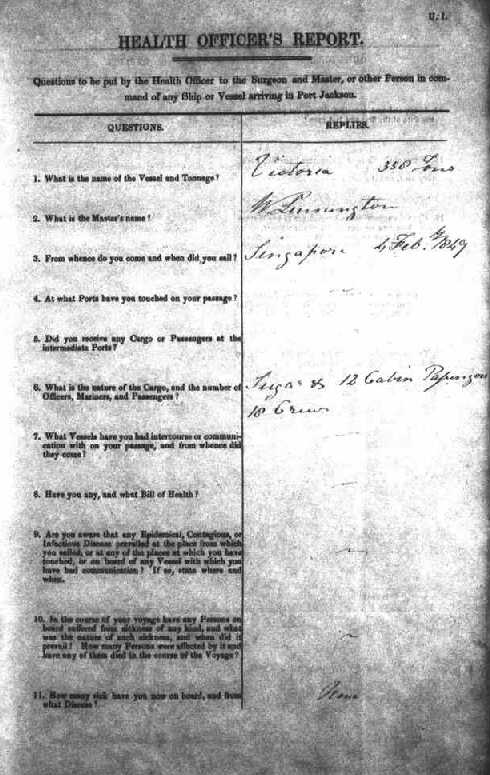 U. 1.
HEALTH OFFICER'S REPORT.
Questions to be put by the Health Officer to the Surgeon and Master, or other Person in com-
mand of any Ship or Vessel arriving in Port Jackson.
QUESTIONS. REPLIES.
1. What is the name of the Vessel and Tonnage? Victoria 338 Tons
2. What is the Master's name? W
3. From whence do you come and when did you sail? Singapore 4 Feb.y 1849
4. At what Ports have you touched on your passage?
5. Did you receive any Cargo or Passengers at the
intermediate Ports?
6. What is the nature of the Cargo, and the number of Sugar & 12 Cabin Passengers
Officers, Mariners, and Passengers? 18 Crew
7. What Vessels have you had intercourse or communi-
cation with on your passage, and from whence did
they come?
8. Have you any, and what Bill of Health?
9. Are you aware that any Epidemical, Contagious, or
Infectious Disease prevailed at the place from which
you sailed, or at any of the places at which you have
touched, or on board of any Vessel with which you
have had communication? If so, state where and
when.
10. In the course of your voyage have any Persons on
board suffered from sickness of any kind, and what
was the nature of such sickness, and when did it
prevail? How many Persons were affected by it and
have any of them died in the course of the Voyage?
11. How many sick have you now on board, and from None
what Disease?